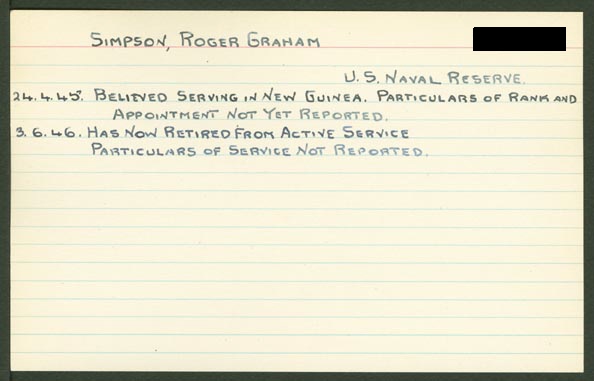 SIMPSON, ROGER GRAHAM
U.S. NAVAL RESERVE.
24.4.45. BELIEVED SERVING IN NEW GUINEA. PARTICULARS OF RANK AND
APPOINTMENT NOT YET REPORTED.
3.6.46. HAS NOW RETIRED FROM ACTIVE SERVICE
PARTICULARS OF SERVICE NOT REPORTED.